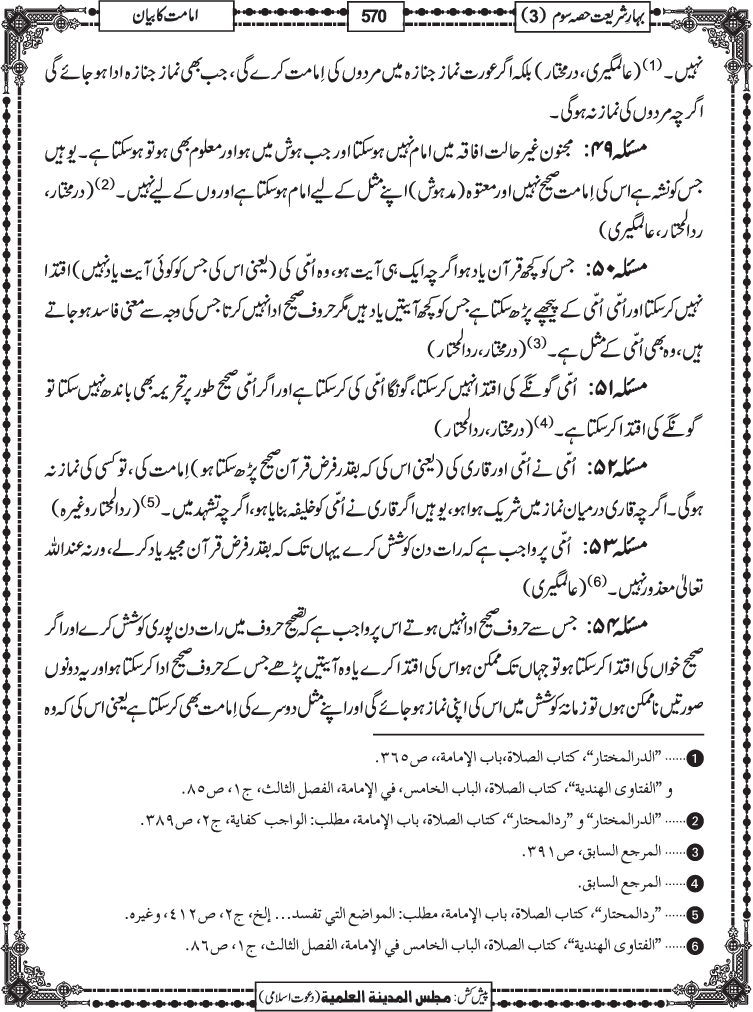 بہارِ شریعت حصہ سوم (3)
570
امامت کا بیان
نہیں۔(1) (عالمگیری، درمختار) بلکہ اگر عورت نماز جنازہ میں مردوں کی اِمامت کرے گی، جب بھی نماز جنازہ ادا ہو جائے گی
اگرچہ مردوں کی نماز نہ ہوگی۔
مسئلہ ۴۹: مجنون غیر حالت افاقہ میں امام نہیں ہو سکتا اور جب ہوش میں ہو اور معلوم بھی ہو تو ہو سکتا ہے۔ یوہیں
جس کو نشہ ہے اس کی اِمامت صحیح نہیں اور معتوہ (مدہوش) اپنے مثل کے لیے امام ہو سکتا ہے اوروں کے لیے نہیں۔(2) (درمختار،
ردالمحتار، عالمگیری)
مسئلہ ۵۰: جس کو کچھ قرآن یاد ہو اگرچہ ایک ہی آیت ہو، وہ اُمّی کی (یعنی اس کی جس کو کوئی آیت یاد نہیں) اقتدا
نہیں کر سکتا اور اُمّی اُمّی کے پیچھے پڑھ سکتا ہے جس کو کچھ آیتیں یاد ہیں مگر حروف صحیح ادا نہیں کرتا جس کی وجہ سے معنی فاسد ہو جاتے
ہیں، وہ بھی اُمّی کے مثل ہے۔(3) (درمختار، ردالمحتار)
مسئلہ ۵۱: اُمّی گونگے کی اقتدا نہیں کر سکتا، گونگا اُمّی کی کر سکتا ہے اور اگر اُمّی صحیح طور پر تحریمہ بھی باندھ نہیں سکتا تو
گونگے کی اقتدا کر سکتا ہے۔(4) (درمختار، ردالمحتار)
مسئلہ ۵۲: اُمّی نے اُمّی اور قاری کی (یعنی اس کی کہ بقدر فرض قرآن صحیح پڑھ سکتا ہو) اِمامت کی، تو کسی کی نماز نہ
ہوگی۔ اگرچہ قاری درمیان نماز میں شریک ہوا ہو، یوہیں اگر قاری نے اُمّی کو خلیفہ بنایا ہو، اگرچہ تشہد میں۔(5) (ردالمحتار وغیرہ)
مسئلہ ۵۳: اُمّی پر واجب ہے کہ رات دن کوشش کرے یہاں تک کہ بقدر فرض قرآن مجید یاد کر لے، ورنہ عند اللہ
تعالیٰ معذور نہیں۔(6) (عالمگیری)
مسئلہ ۵۴: جس سے حروف صحیح ادا نہیں ہوتے اس پر واجب ہے کہ تصحیح حروف میں رات دن پوری کوشش کرے اور اگر
صحیح خواں کی اقتدا کر سکتا ہو تو جہاں تک ممکن ہو اس کی اقتدا کرے یا وہ آیتیں پڑھے جس کے حروف صحیح ادا کر سکتا ہو اور یہ دونوں
صورتیں ناممکن ہوں تو زمانۂ کوشش میں اس کی اپنی نماز ہو جائے گی اور اپنے مثل دوسرے کی اِمامت بھی کر سکتا ہے یعنی اس کی کہ وہ
1 ...... "الدرالمختار"، كتاب الصلاة،باب الإمامة،، ص٣٦٥.
و "الفتاوى الهندية"، كتاب الصلاة، الباب الخامس، في الإمامة، الفصل الثالث، ج١، ص٨٥.
2 ...... "الدرالمختار" و "ردالمحتار"، كتاب الصلاة، باب الإمامة، مطلب: الواجب كفاية، ج٢، ص٣٨٩.
3 ...... المرجع السابق، ص٣٩١.
4 ...... المرجع السابق.
5 ...... "ردالمحتار"، كتاب الصلاة، باب الإمامة، مطلب: المواضع التي تفسد... إلخ، ج٢، ص٤١٢، وغيره.
6 ...... "الفتاوى الهندية"، كتاب الصلاة، الباب الخامس في الإمامة، الفصل الثالث، ج١، ص٨٦.
پیش کش: مجلس المدينة العلمية (دعوت اسلامی)